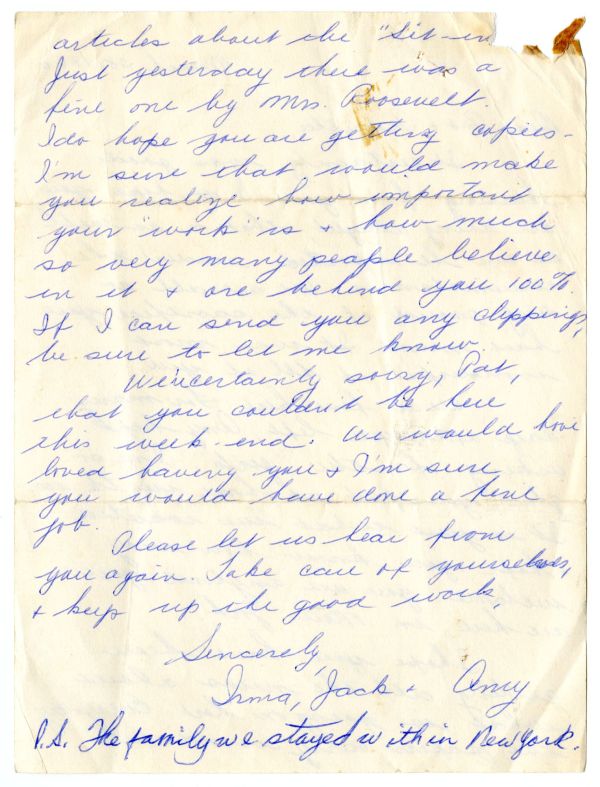 articles about the "Sit-in
Just yesterday there was a
fine one by Mrs. Roosevelt.
I do hope you are getting copies -
I'm sure that would make
you realize how important
your "work" is + how much
so very many people believe
in it + are behind you 100%.
If I can send you any clippings,
be sure to let me know.
We're certainly sorry, Pat,
that you couldn't be here
this week-end. We would have
loved having you + I'm sure
you would have done a fine
job.
Please let us hear from
you again. Take care of yourselves,
+ keep up the good work.
Sincerely,
Irma, Jack + Amy
P.S. The family we stayed with in New York.